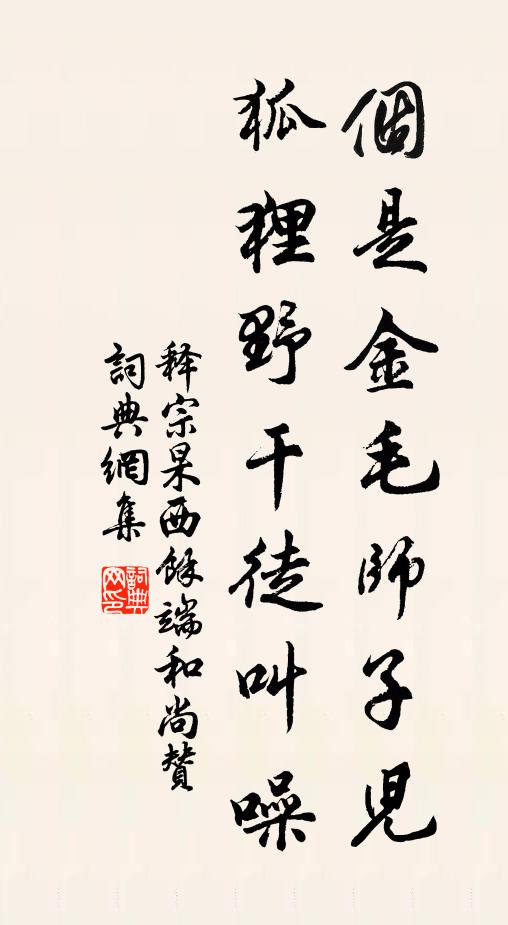 個是金毛師子児
狐狸野干徒叫噪
释宗杲西餘端和尚贊
詞典網集
詞典网印